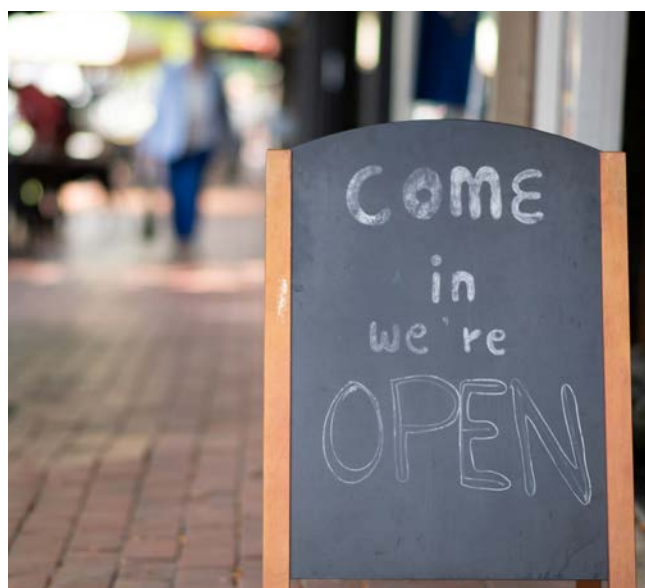 COME
in
we're
OPEN